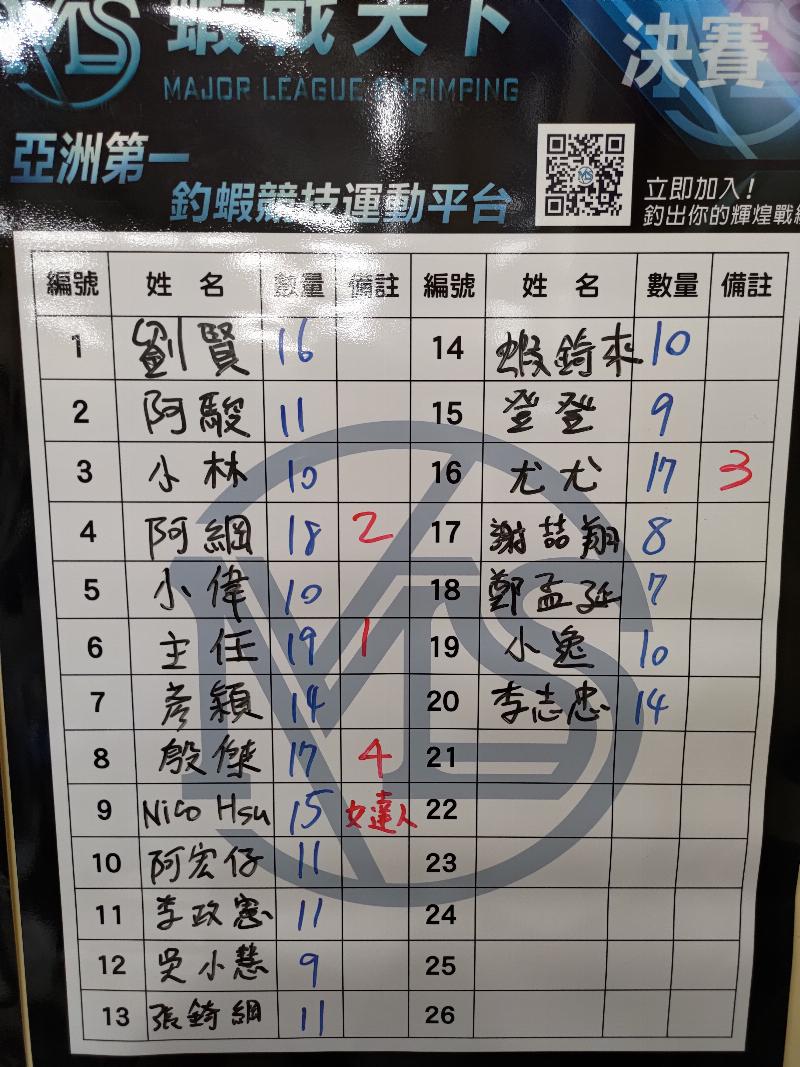 MS 蝦戰天下 決賽
MAJOR LEAGUE SHRIMPING
亞洲第一
釣蝦競技運動平台
立即加入！
釣出你的輝煌戰
編號 姓名 數量 備註 編號 姓名 數量 備註
1 劉賢 16 14 蝦錡來 10
2 阿駿 11 15 登登 9
3 小林 10 16 尤尤 17 3
4 阿綱 18 2 17 謝喆翔 8
5 小偉 10 18 鄭孟延 7
6 主任 19 1 19 小逸 10
7 彥穎 14 20 李志忠 14
8 殷傑 17 4 21
9 Nico Hsu 15 女達人 22
10 阿宏仔 11 23
11 李政憲 11 24
12 吳小慧 9 25
13 張錡綱 11 26